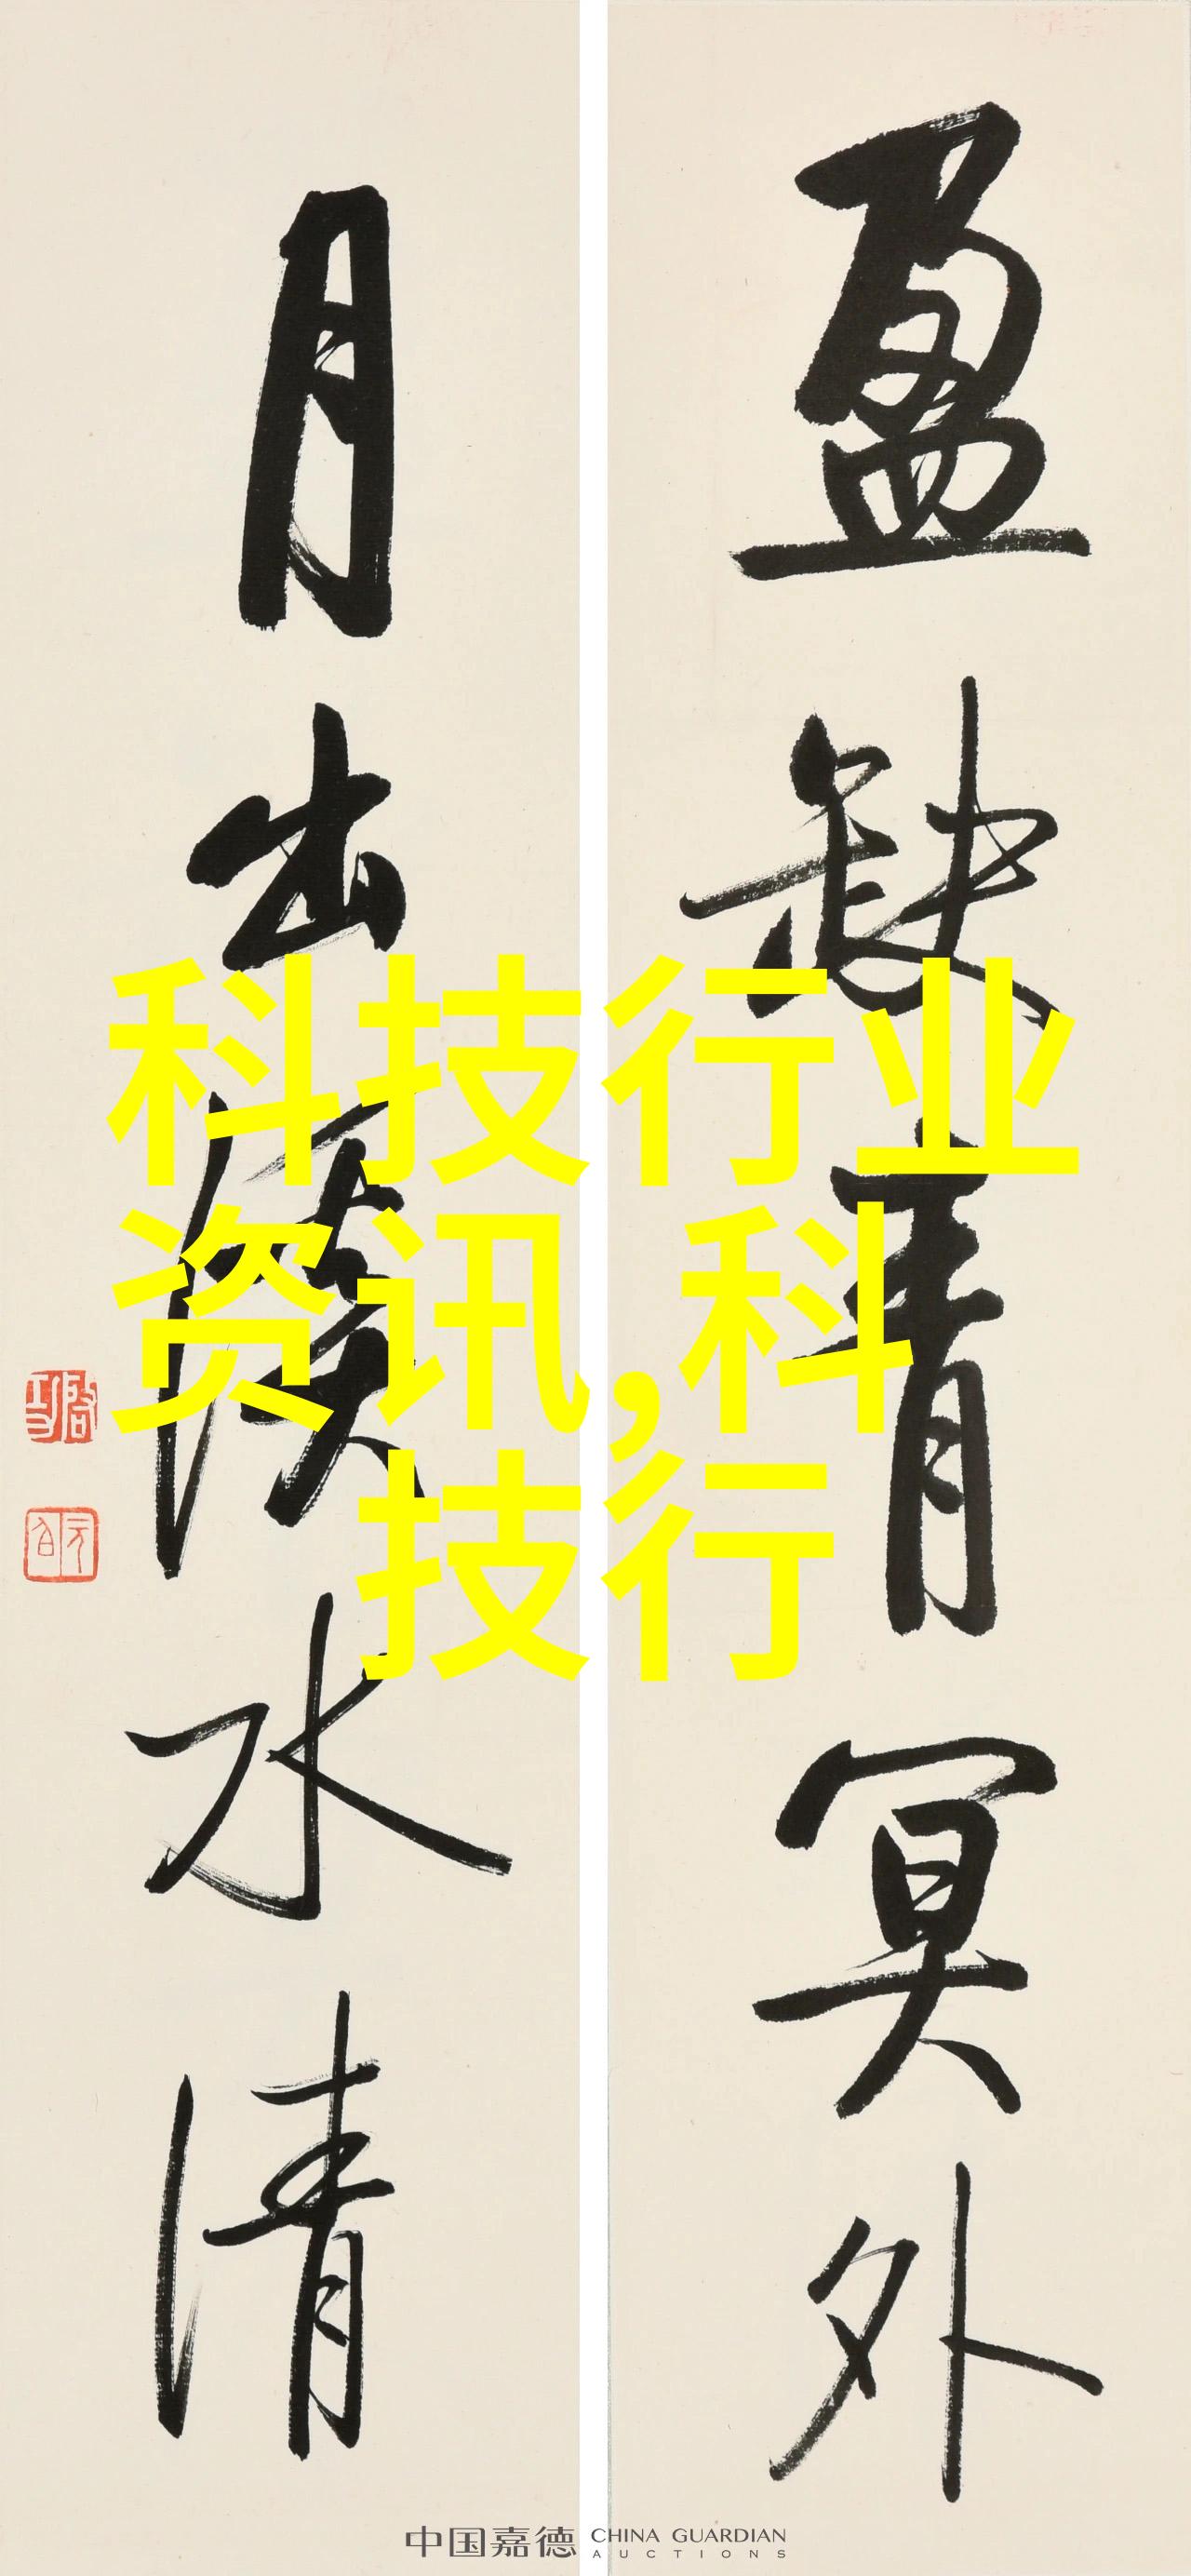 盈缺青冥外
月出淡水清
启功
元白
科技行业
资讯,科
技行
中国嘉德 CHINA GUARDIAN
AUCTIONS